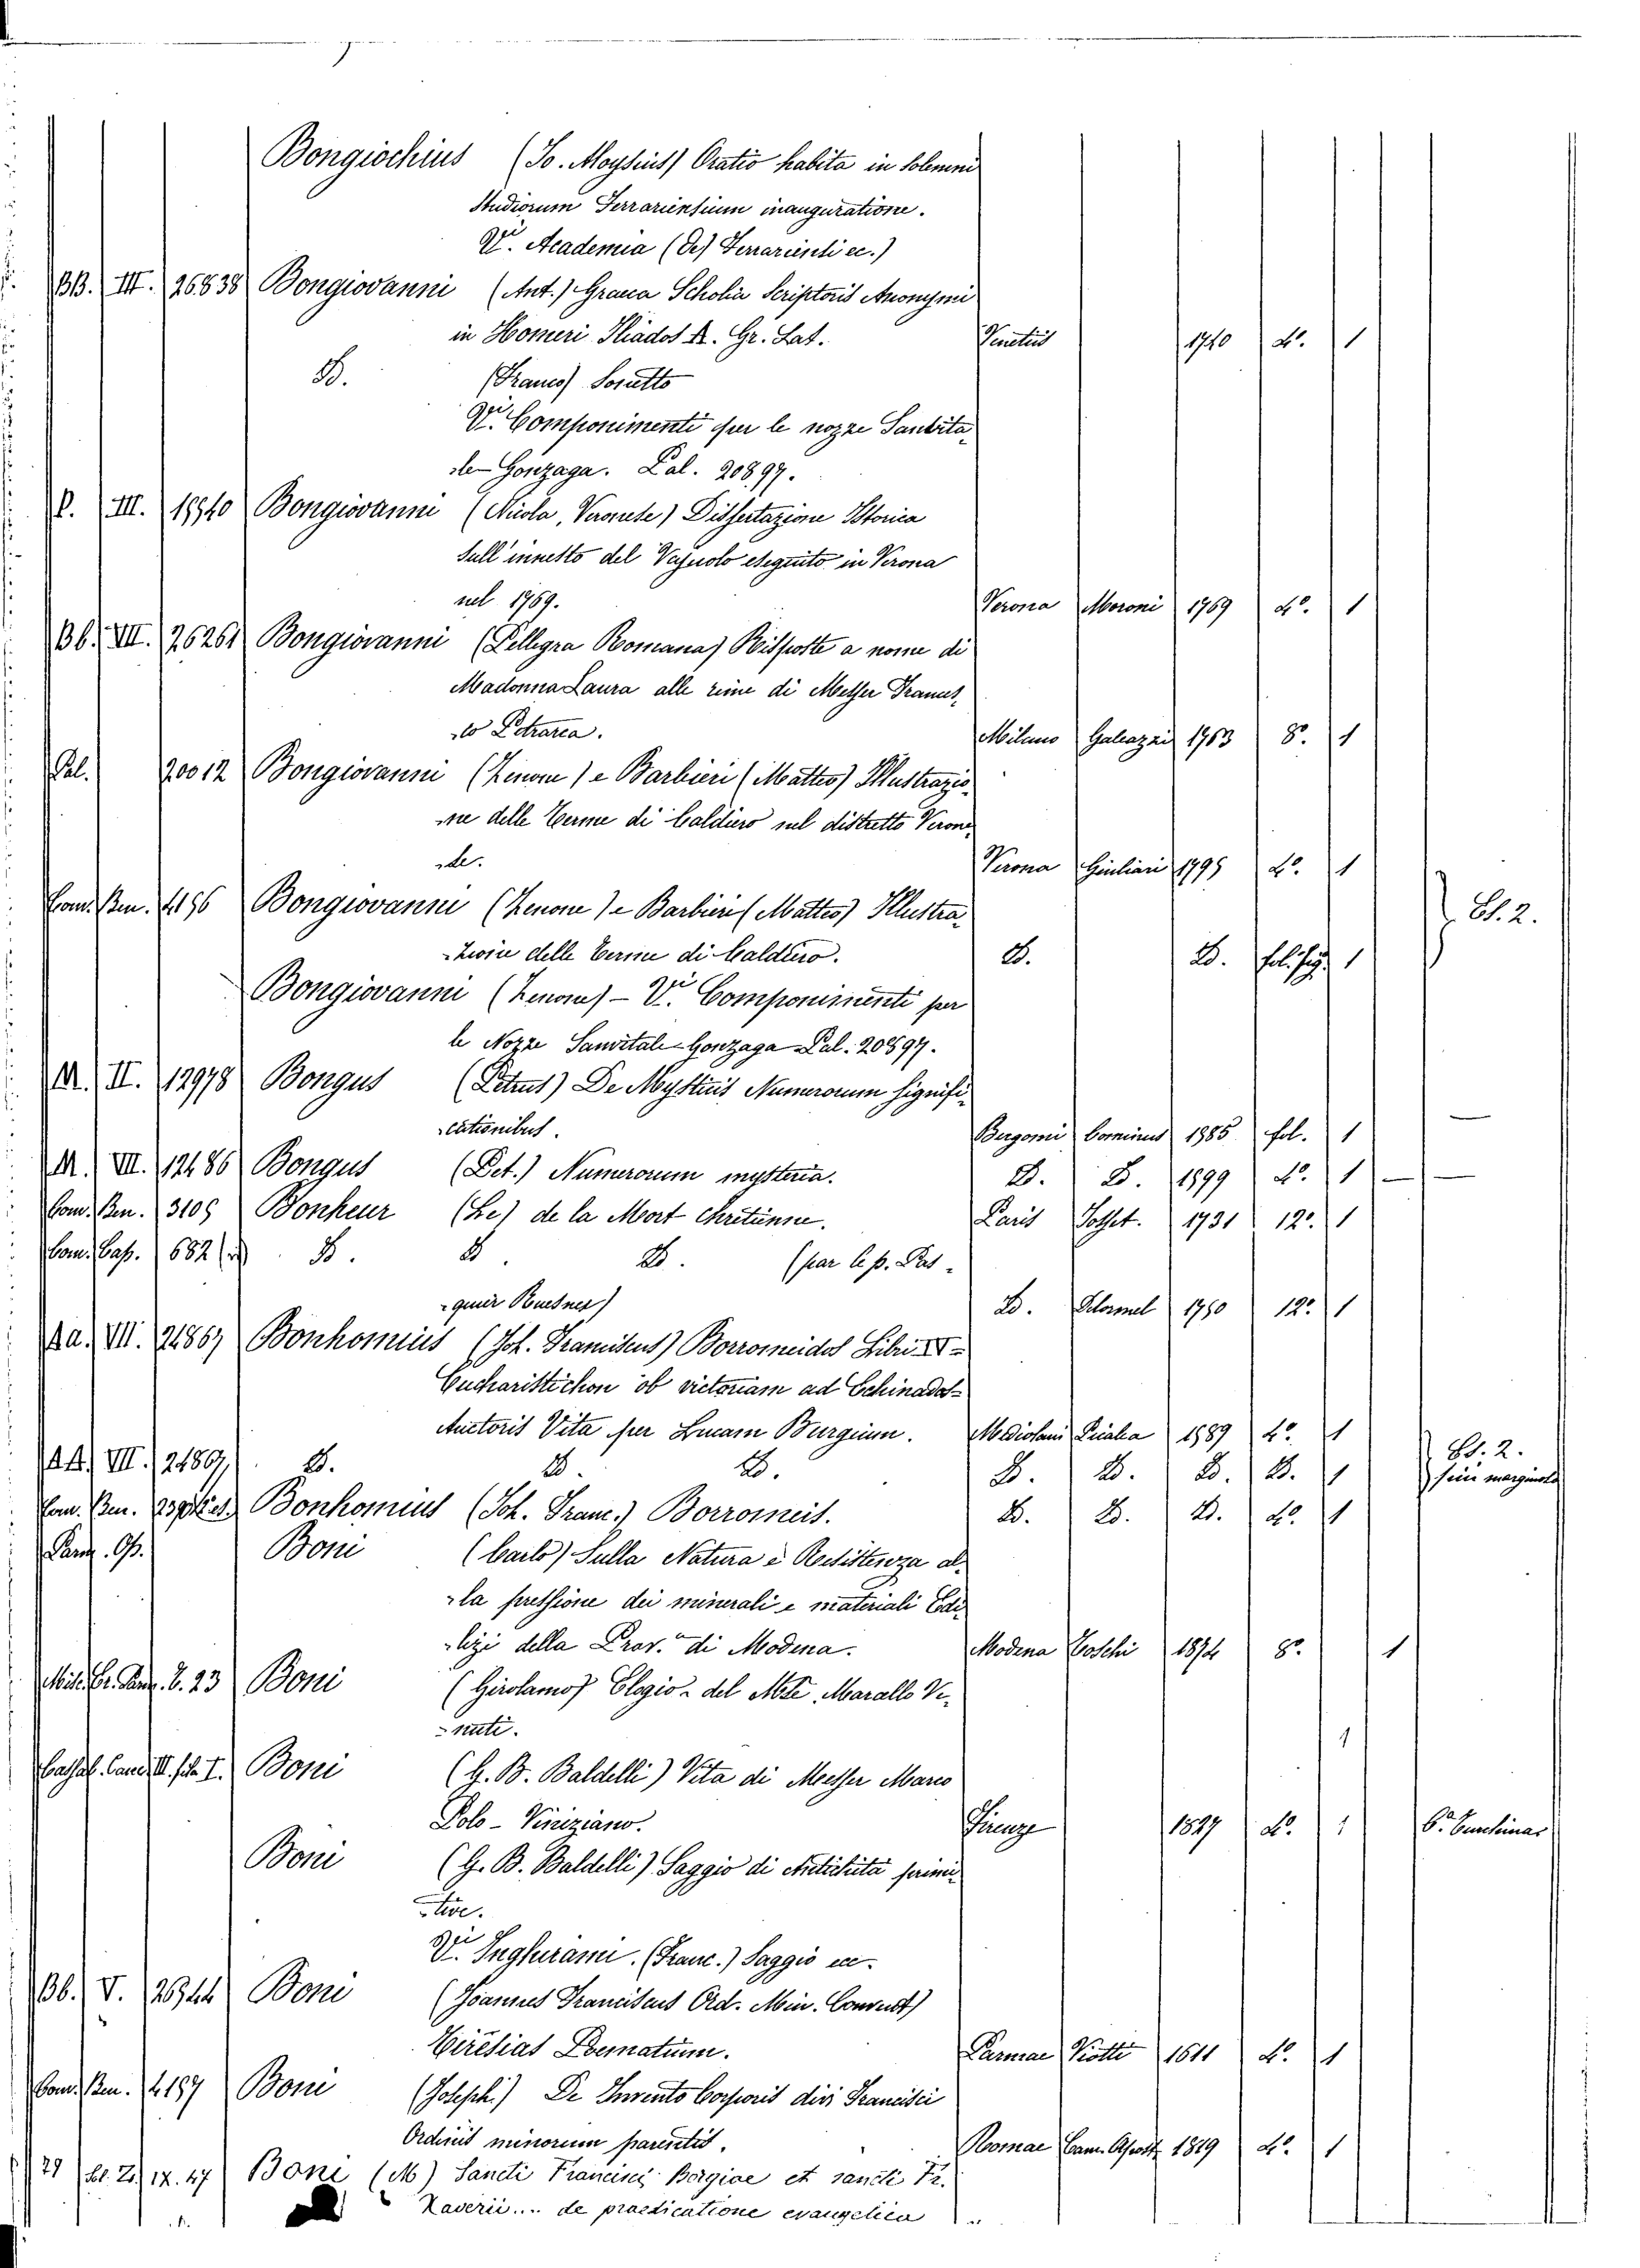 Bongiochius (Jo. Aloysius) Oratio habita in solemni
Studiorum Ferrariensium inauguratione.
Vi. Academia (De) Ferrariensi ec.)
BB. III. 26838 Bongiovanni (Ant.) Graeca Scholia Scriptoris Anonymi
in Homeri Iliados A. Gr. Lat. Venetiis 1740 4o. 1
D. (Franco) Sonetto
Vi. Componimenti per le nozze Sanvita-
le-Gonzaga. Pal. 20897.
P. III. 18940 Bongiovanni (Nicola, Veronese) Dissertazione Istorica
Sull'innesto del Vajuolo eseguito in Verona
nel 1769. Verona Moroni 1769 4o. 1
Bb. VII. 26261 Bongiovanni (Pellegra Romana) Risposte a nome di
Madonna Laura alle rime di Messer Frances-
co Petrarca. Milano Galeazzi 1763 8o. 1
Pal. 20012 Bongiovanni (Zenone) e Barbieri (Matteo) Illustrazio-
ne delle Terme di Caldiero nel distretto Verone-
se. Verona Giuliari 1795 4o. 1
Com. Ben. 4156 Bongiovanni (Zenone) e Barbieri (Matteo) Illustra-
zione delle Terme di Caldiero. D. D. fol. fig. 1 Es. 2.
Bongiovanni (Zenone) - Vi. Componimenti per
le Nozze Sanvitale-Gonzaga Pal. 20897.
M. II. 12978 Bongus (Petrus) De Mysticis Numerorum signifi-
cationibus. Bergomi Cominus 1585 fol. 1 —
M. VII. 12486 Bongus (Pet.) Numerorum mysteria. D. D. 1599 4o. 1 — —
Com. Ben. 3105 Bonheur (Le) de la Mort chretienne. Paris Josset. 1731 12o. 1
Com. Cap. 682 D. D. D. (par le p. Pas-
quier Quesnel) D. Delormel 1750 12o. 1
Aa. VII. 21867 Bonhomius (Joh. Franciscus) Borromeidos Libri IV-
Eucharistichon ob victoriam ad Echinadas-
Auctoris Vita per Lucam Burgium. Mediolani Picalia 1589 4o. 1
AA. VII. 21897, D. D. D. D. D. D. D. 1 Es. 2. senza marginale
Com. Ben. Bonhomius (Joh. Franc.) Borromeis. D. D. D. 4o. 1
Parm. Op. Boni (Carlo) Sulla Natura e Resistenza al-
la pressione dei minerali e materiali Edi-
lizi della Prov.a di Modena. Modena Toschi 1874 8o. 1
Misc. Er. Parm. 8. 23 Boni (Girolamo) Elogio - del Mse. Marallo Ve-
nuti. 1
Boni (G. B. Baldelli) Vita di Messer Marco
Polo - Viniziano. Firenze 1827 4o. 1
Boni (G. B. Baldelli) Saggio di Antichità primi-
tive.
Vi. Inghirami. (Franc.) Saggio ec.
Bb. V. 26944 Boni (Joannes Franciscus Ord. Min. Convent)
Tiresias Poematum. Parmae Viotti 1611 4o. 1
Com. Ben. 4157 Boni (Joseph) De Invento Corporis divi Francisci
Ordinis minorum parentis. Romae Cam. Apost. 1819 4o. 1
12. 47 Boni (M) Sancti Francisci Borgiae et sancti Fr.
Xaverii.... de praedicatione evangelica